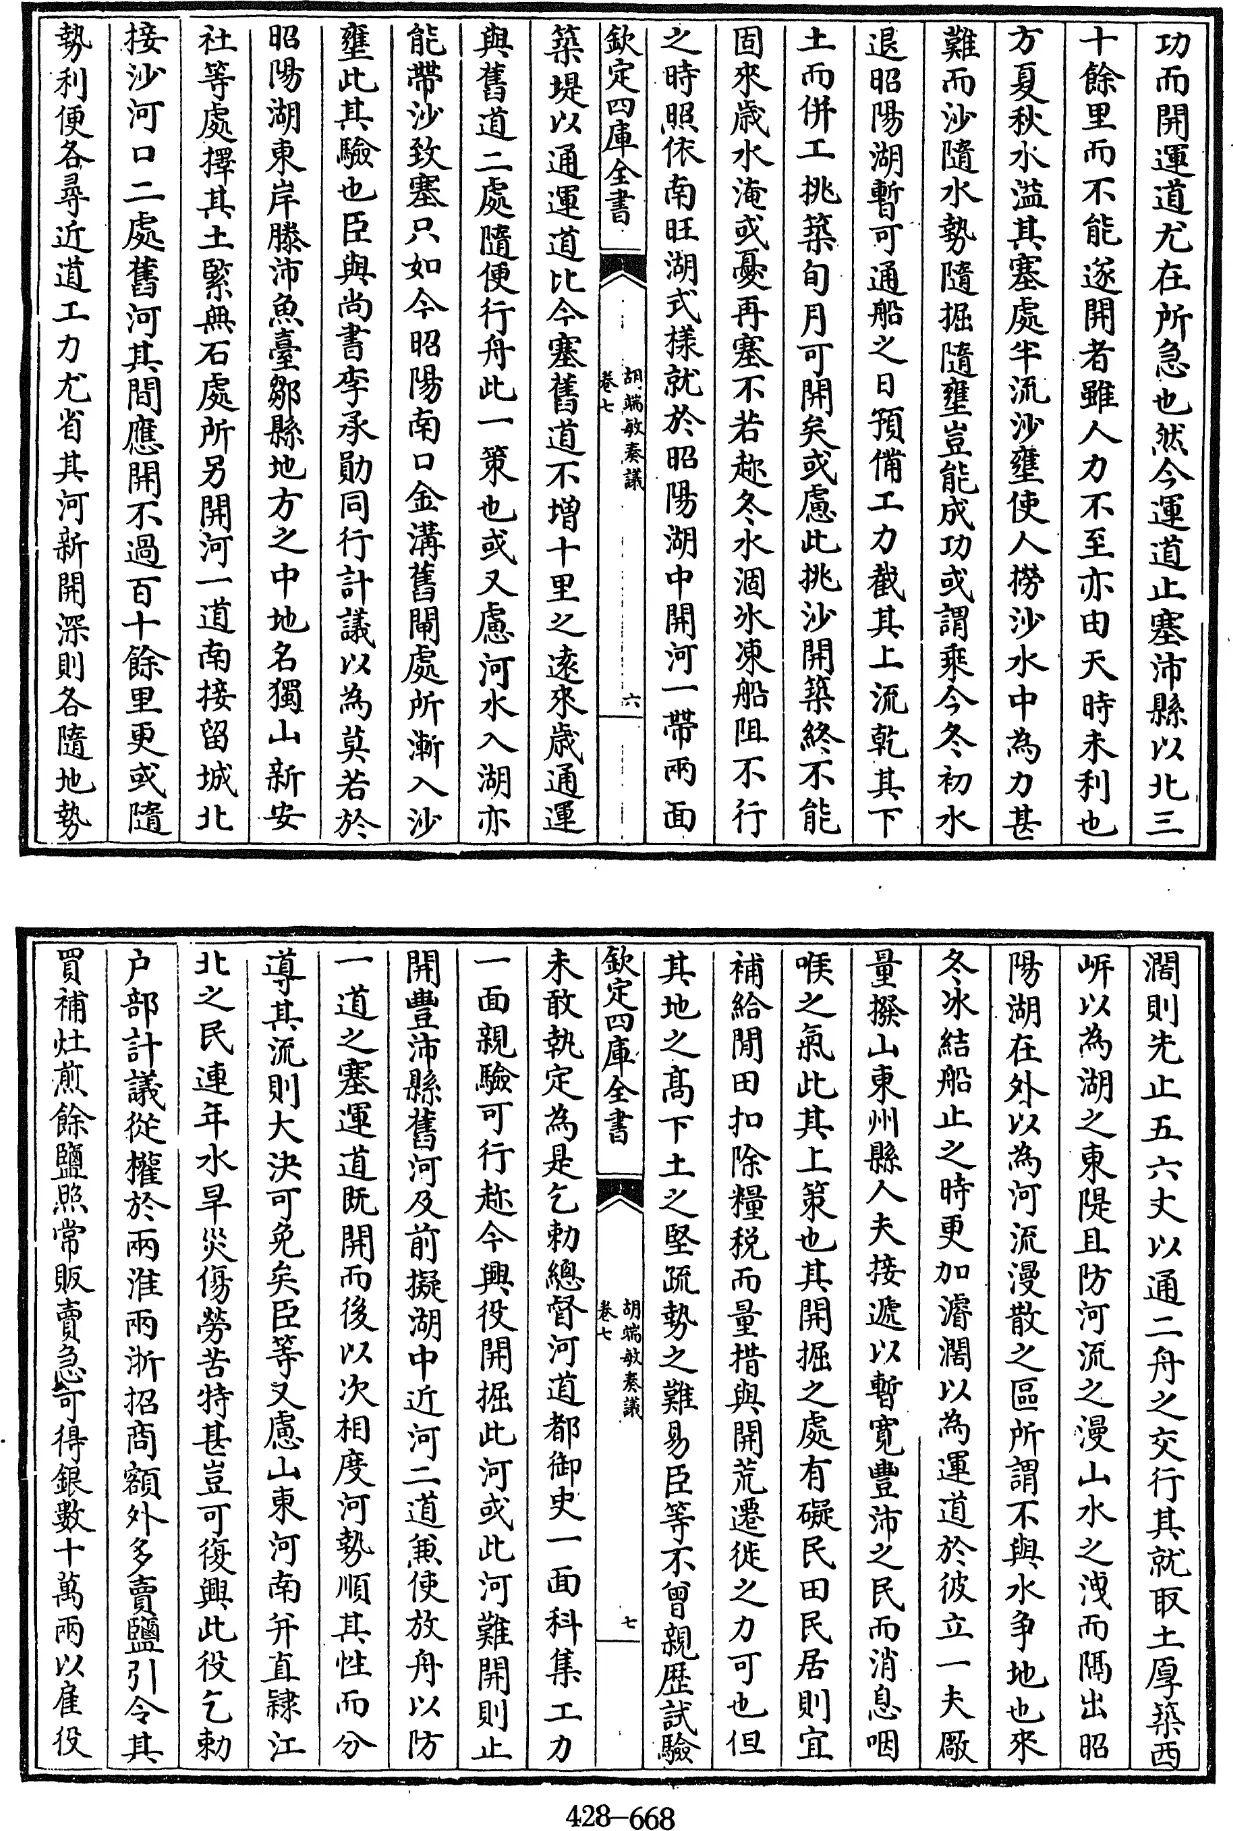 功而開運道尤在所急也然今運道止塞沛縣以北三
十餘里而不能遂開者雖人力不至亦由天時未利也
方夏秋水溢其塞處半流沙壅使人撈沙水中為力甚
難而沙隨水勢隨掘隨壅豈能成功或謂乘今冬初水
退昭陽湖暫可通船之日預備工力截其上流乾其下
土而併工挑築旬月可開矣或慮此挑沙開築終不能
固來歲水淹或憂再塞不若趂冬水涸氷凍船阻不行
之時照依南旺湖式樣就於昭陽湖中開河一帶兩面
欽定四庫全書
胡端敏奏議
卷七
六
築堤以通運道比今塞舊道不增十里之遠來歲通運
與舊道二處隨便行舟此一策也或又慮河水入湖亦
能帶沙致塞只如今昭陽南口金溝舊閘處所漸入沙
壅此其驗也臣與尚書李承勛同行計議以為莫若於
昭陽湖東岸滕沛魚臺鄒縣地方之中地名獨山新安
社等處擇其土緊無石處所另開河一道南接留城北
接沙河口二處舊河其間應開不過百十餘里更或隨
勢利便各尋近道工力尤省其河新開深則各隨地勢
濶則先止五六丈以通二舟之交行其就取土厚築西
岍以為湖之東隄且防河流之漫山水之洩而隅出昭
陽湖在外以為河流漫散之區所謂不與水争地也來
冬冰結船止之時更加濬濶以為運道於彼立一夫厰
量撥山東州縣人夫接遞以暫寛豐沛之民而消息咽
喉之氣此其上策也其開掘之處有礙民田民居則宜
補給閒田扣除糧税而量措與開荒遷徙之力可也但
其地之髙下土之堅疏勢之難易臣等不曾親歴試驗
欽定四庫全書
胡端敏奏議
卷七
七
未敢執定為是乞勅總督河道都御史一面科集工力
一面親驗可行趂今興役開掘此河或此河難開則止
開豐沛縣舊河及前擬湖中近河二道兼使放舟以防
一道之塞運道既開而後以次相度河勢順其性而分
導其流則大決可免矣臣等又慮山東河南并直隸江
北之民連年水旱災傷勞苦特甚豈可復興此役乞勅
户部計議從權於兩淮兩浙招商額外多賣鹽引令其
買補灶煎餘鹽照常販賣急可得銀數十萬兩以雇役
428—668